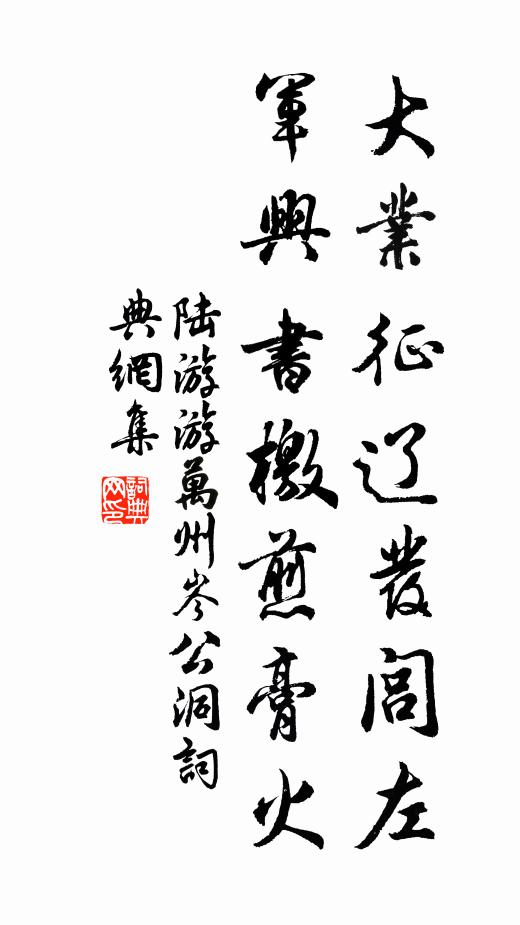 大業征辽發閭左
軍興書檄煎膏火
陆游游萬州岑公洞詞
典網集
詞典网印